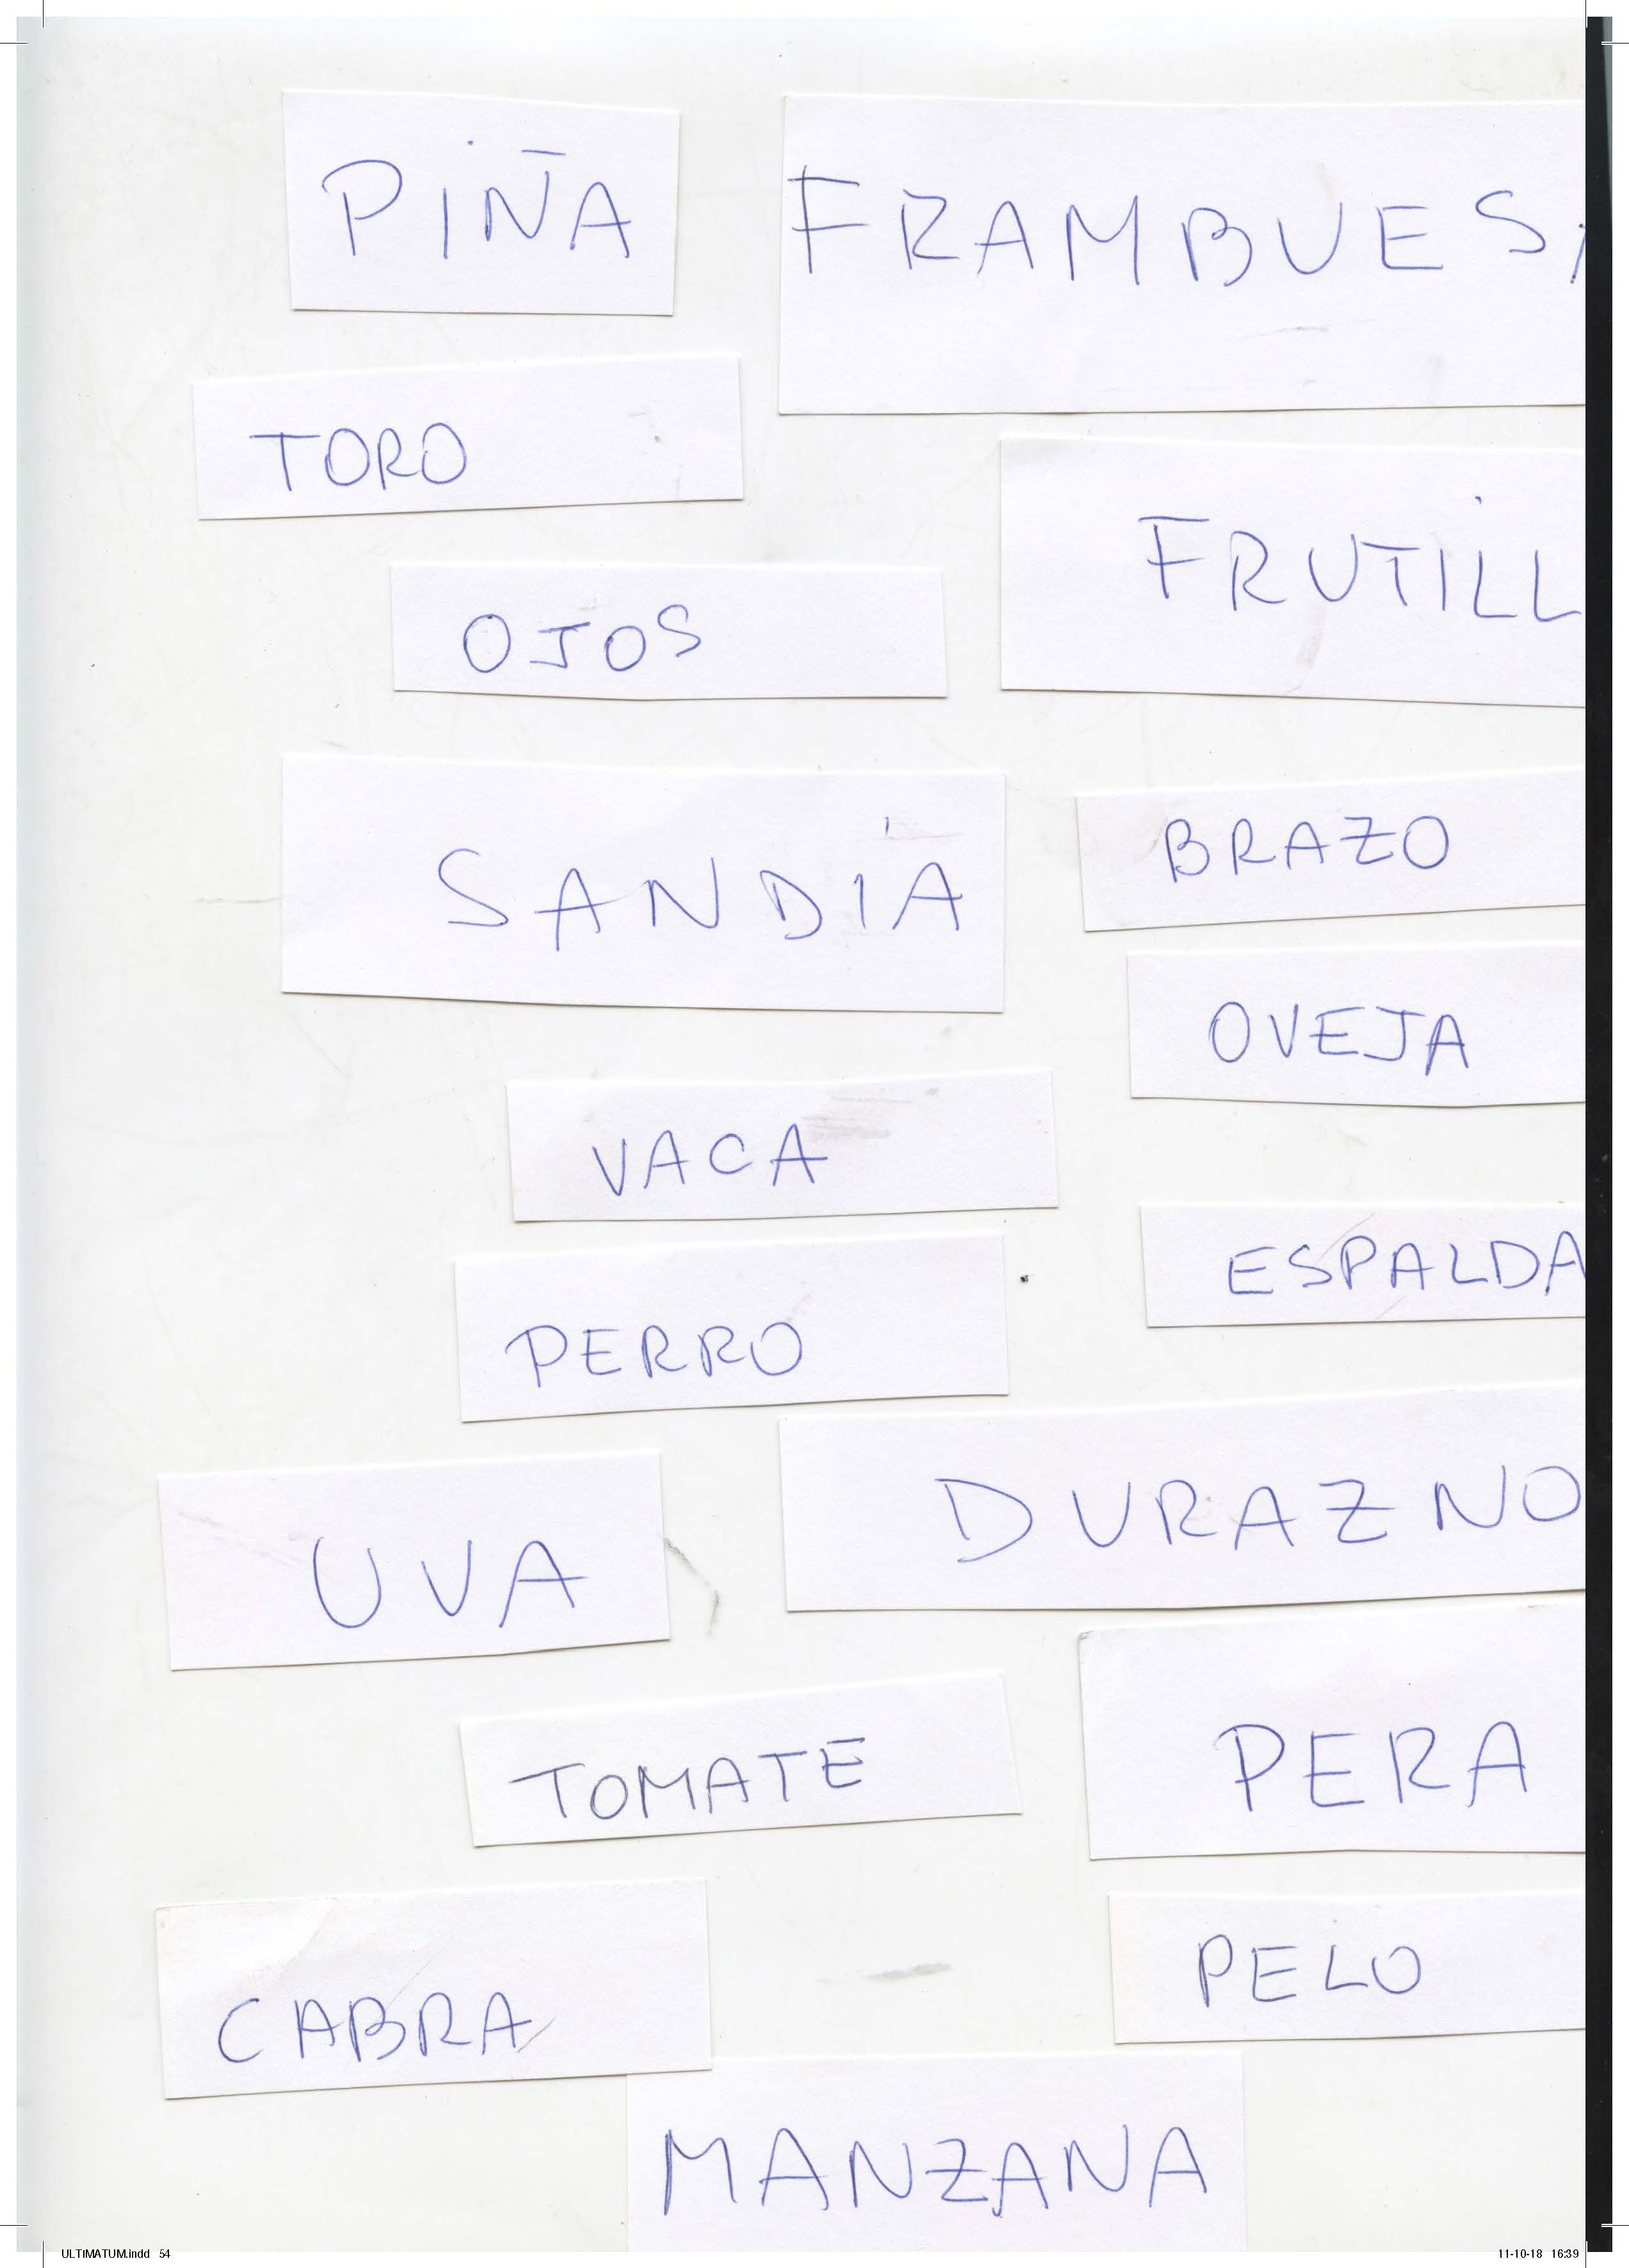 PIÑA
FRAMBUESA
TORO
FRUTILL
OJOS
SANDÍA
BRAZO
OVEJA
VACA
ESPALDA
PERRO
DURAZNO
UVA
TOMATE
PERA
CABRA
PELO
MANZANA
ULTIMATUM.indd 54
11-10-18 16:39